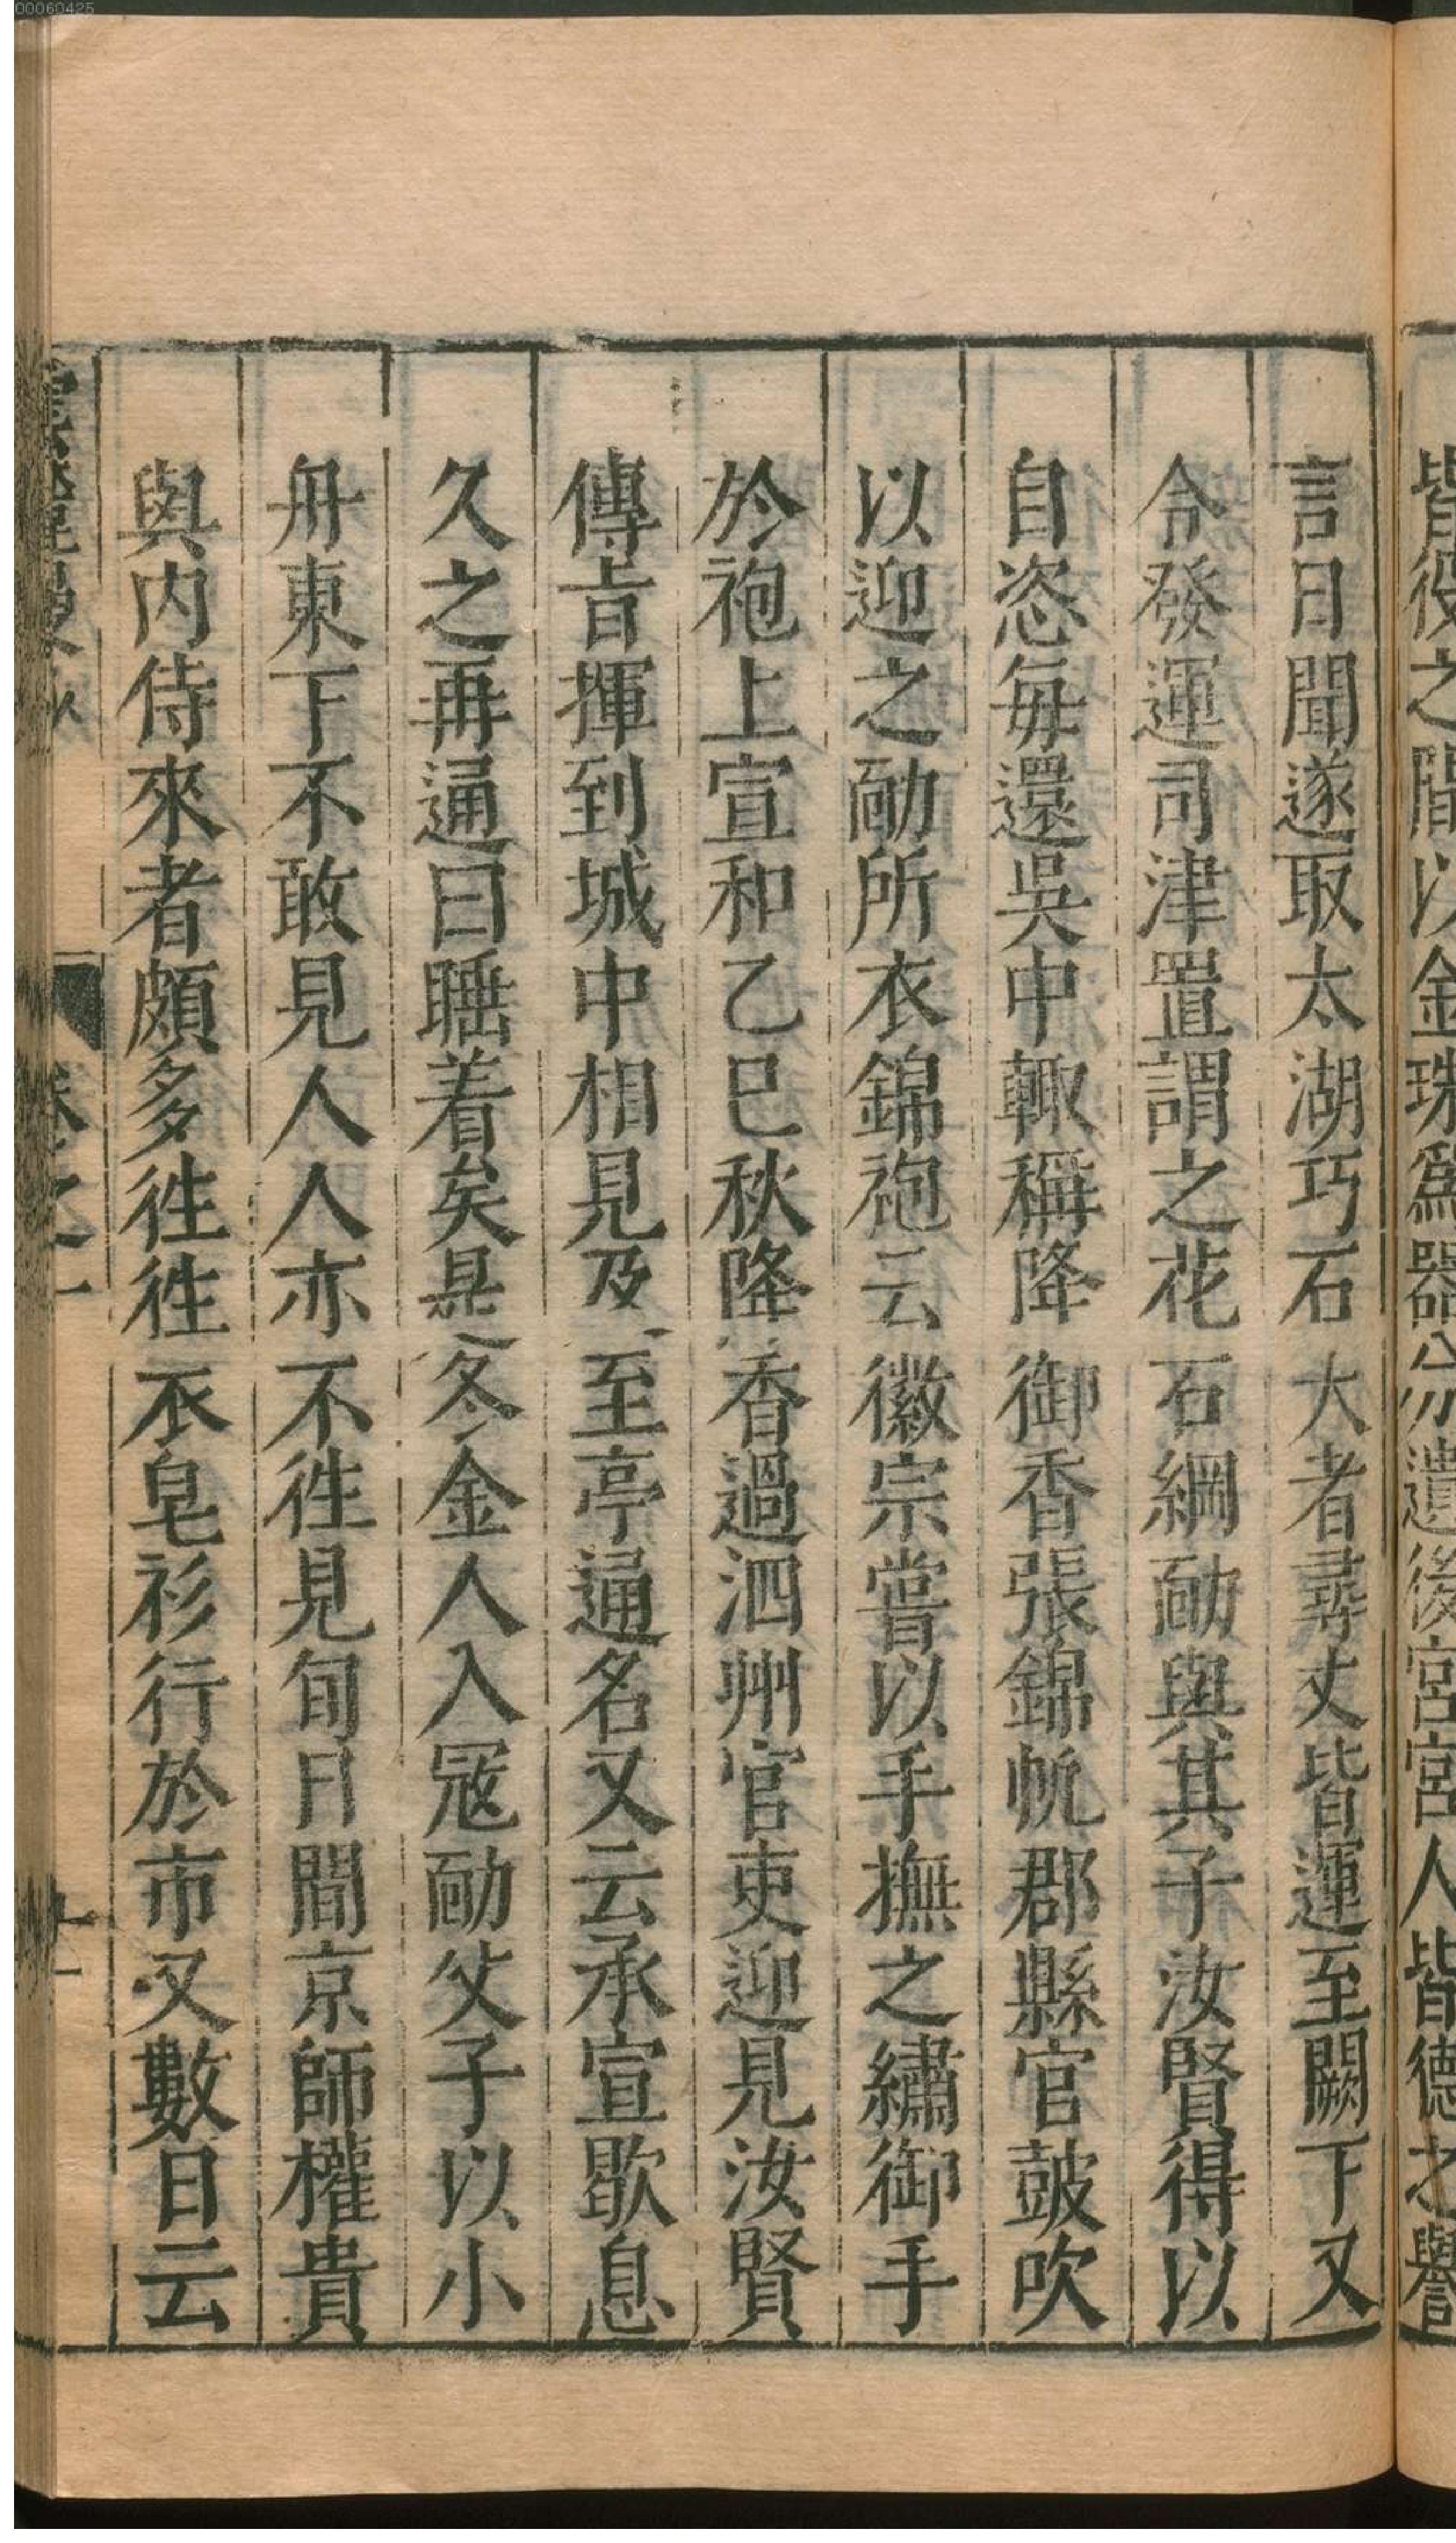 00060425
皆役之間以金珠爲器分遺後宮宮人皆德之譽
言日聞遂取太湖巧石大者尋丈皆運至闕下又
令發運司津置謂之花石綱勔與其子汝賢得以
自恣每還吳中輙稱降御香張錦帆郡縣官鼓吹
以迎之勔所衣錦袍云徽宗嘗以手撫之繡御手
於袍上宣和乙巳秋降香過泗州官吏迎見汝賢
傳㫖揮到城中相見及至亭通名又云承宣歇息
久之再通曰睡着矣是冬金人入冦勔父子以小
舟東下不敢見人人亦不徃見旬日間京師權貴
與内侍來者頗多徃徃衣皂衫行於市又數日云
卷之一
十一